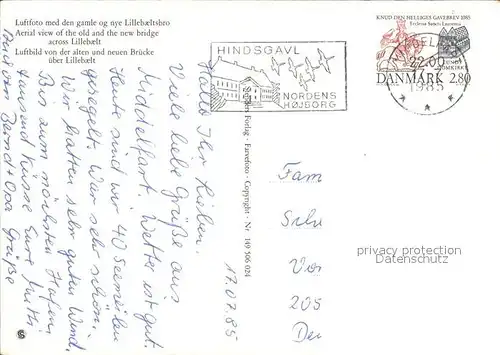 Luftfoto med den gamle og nye Lillebæltsbro
Aerial view of the old and the new bridge
across Lillebælt
Luftbild von der alten und neuen Brücke
über Lillebælt
HINDSGAVL
NORDENS
HØJBORG
KNUD DEN HELLIGES GAVEBREV 1085
Ecclesia Sancti Laurentii
LUND
DOMKIRKE
DANMARK 2.80
MIDDELFART
22.00
1985
Hallo Ihr Lieben.
Viele liebe Grüße aus
Middelfart. Wetter ist gut.
Heute sind wir 40 Seemeilen
gesegelt. War sehr schön.
Wir hatten sehr guten Wind.
Bis zum nächsten Hafen
tausend Küsse Eure Mutti
Auch von Bernd + Opa Grüße
17.07.85
Forlag - Farvefoto - Copyright - Nr. 149 506 024
Fam
Sch
Vor
205
Den
privacy protection
www.ansichtskartenversand.com